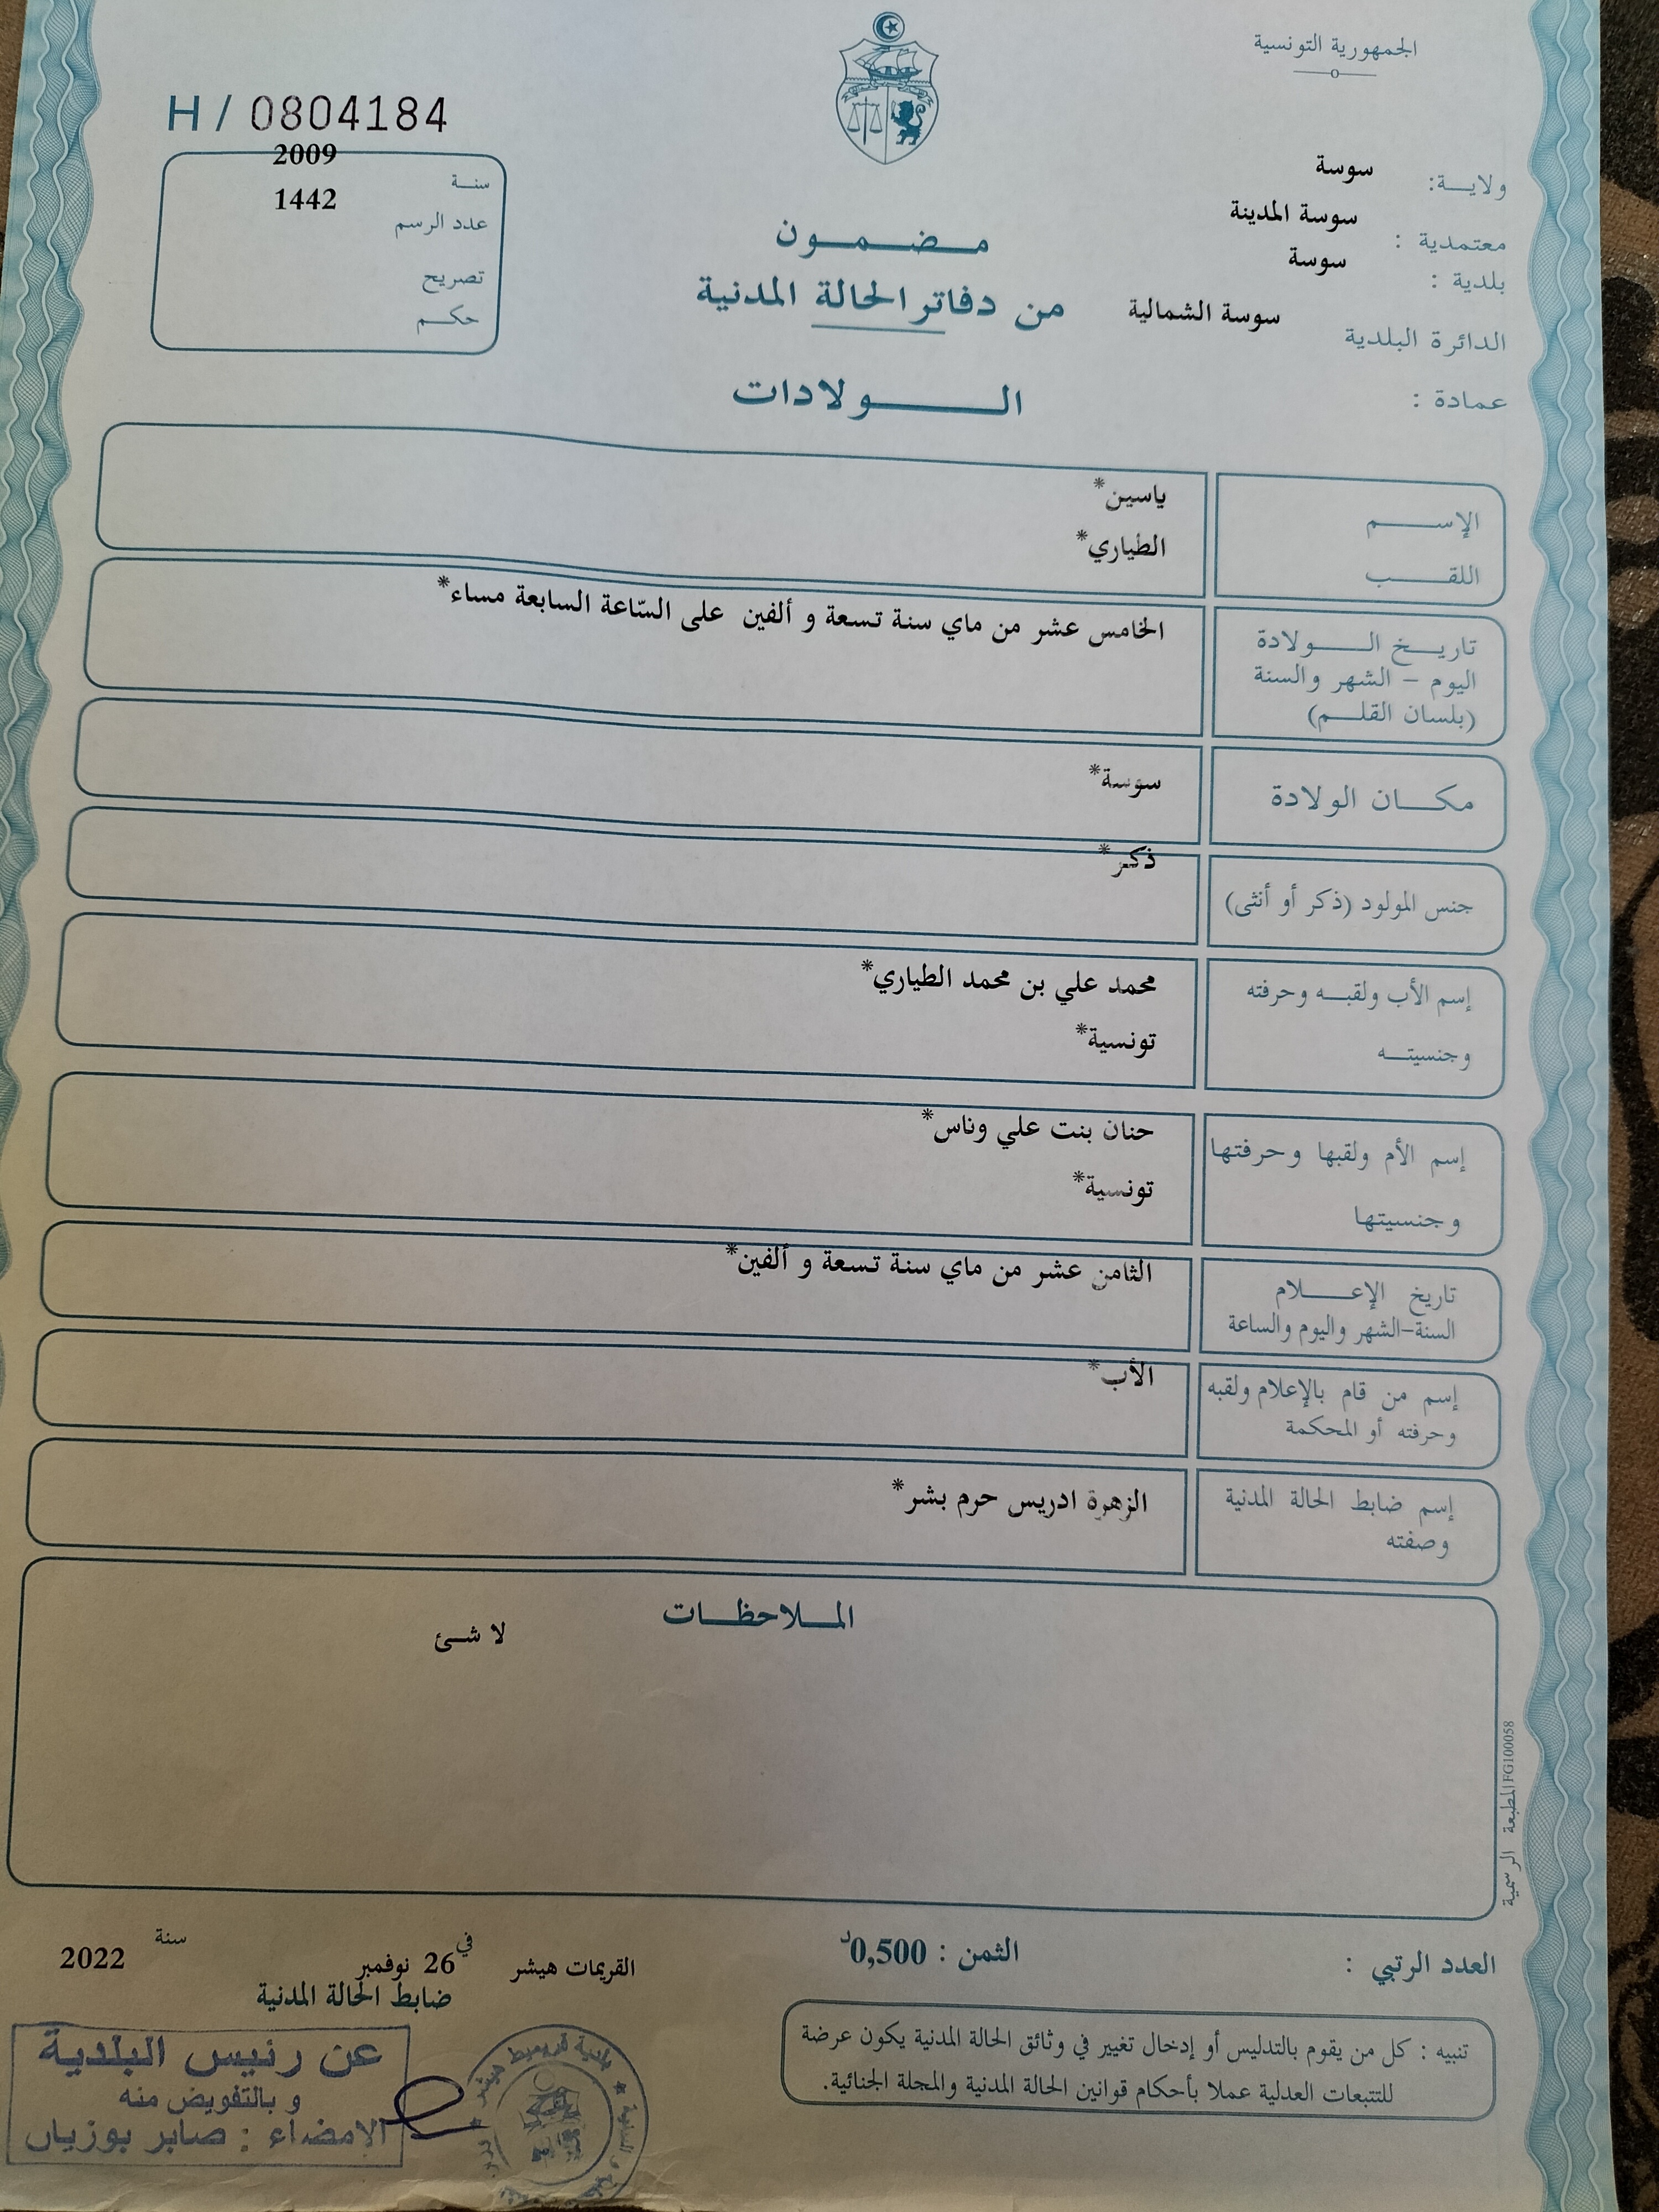 الجمهورية التونسية
H / 0804184
سنة 2009
عدد الرسم 1442
تصريح
حكم
ولاية: سوسة
معتمدية : سوسة المدينة
بلدية : سوسة
الدائرة البلدية سوسة الشمالية
عمادة :
مضمون
من دفاتر الحالة المدنية
الولادات
الإسم ياسين*
اللقب الطياري*
تاريخ الولادة الخامس عشر من ماي سنة تسعة و ألفين على السّاعة السابعة مساء*
اليوم - الشهر والسنة
(بلسان القلم)
مكان الولادة سوسة*
جنس المولود (ذكر أو أنثى) ذكر*
إسم الأب ولقبه وحرفته محمد علي بن محمد الطياري*
وجنسيته تونسية*
إسم الأم ولقبها وحرفتها حنان بنت علي وناس*
وجنسيتها تونسية*
تاريخ الإعلام الثامن عشر من ماي سنة تسعة و ألفين*
السنة-الشهر واليوم والساعة
إسم من قام بالإعلام ولقبه الأب*
وحرفته أو المحكمة
إسم ضابط الحالة المدنية الزهرة ادريس حرم بشر*
وصفته
الملاحظات
لا شئ
المطبعة الرسمية FG100058
العدد الرتبي :
الثمن : 0,500د
القريمات هيشر في 26 نوفمبر سنة 2022
ضابط الحالة المدنية
تنبيه : كل من يقوم بالتدليس أو إدخال تغيير في وثائق الحالة المدنية يكون عرضة
للتتبعات العدلية عملا بأحكام قوانين الحالة المدنية والمجلة الجنائية.
عن رئيس البلدية
و بالتفويض منه
الامضاء : صابر بوزيان